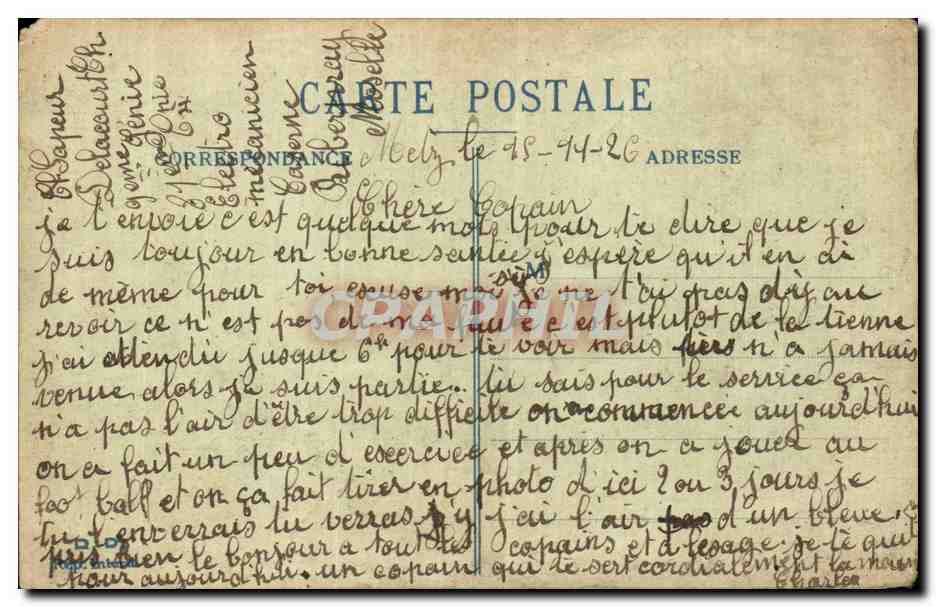 CARTE POSTALE
CORRESPONDANCE
ADRESSE
Sapeur
Delacourt Ch
9eme Génie
31e Cie
Electro
mécanicien
Caserne
Moselle
Metz le 15-11-26
Chère Copain
je t'envoie c'est quelque mots pour te dire que je
suis toujour en bonne santée j'espère qu'il en ai
de même pour toi escuse moi si je ne t'ai pas dij au
revoir ce n'est pas de ma faute c'est plutot de la tienne
j'ai attendu jusque 6h pour te voir mais tiers n'a jamais
venue alors je suis partie.. tu sais pour le service ça
n'a pas l'air d'être trop difficile on a commencée aujourd'hui
on a fait un peu d'escercice et après on a jouer au
foot ball et on ça fait tirer en photo d'ici 2 ou 3 jours je
tu l'enverrais tu verras si j'ai l'air pas d'un bleue.
bien le bonjour a tout les copains et a lesage. je te quit
pour aujourd'hui. un copain qui te sert cordialement la main
Charles
D.D.
CPAPHIL